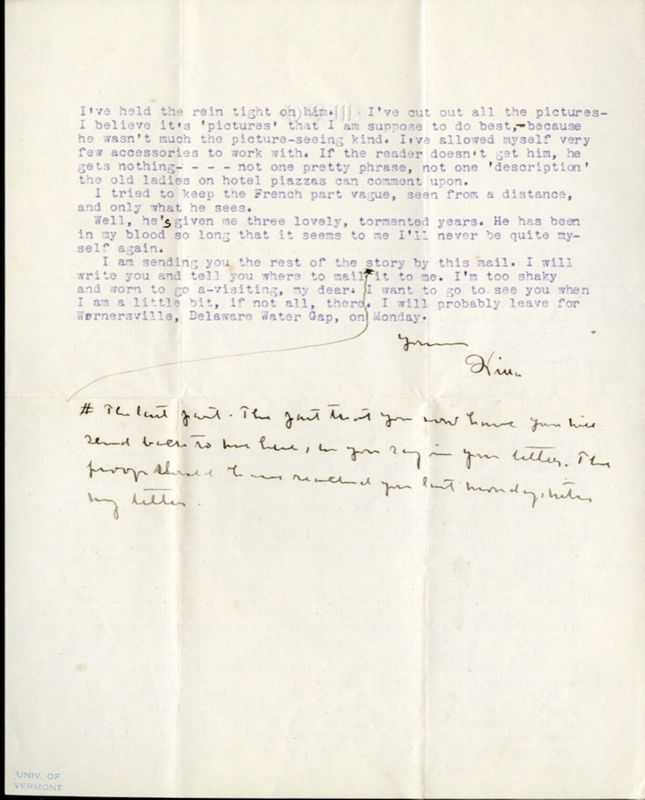 I've held the rein tight on him. I've cut out all the pictures-
I believe it's 'pictures' that I am suppose to do best,-because
he wasn't much the picture-seeing kind. I've allowed myself very
few accessories to work with. If the reader doesn't get him, he
gets nothing- - - - not one pretty phrase, not one 'description'
the old ladies on hotel piazzas can comment upon.
I tried to keep the French part vague, seen from a distance,
and only what he sees.
Well, he's given me three lovely, tormented years. He has been
in my blood so long that it seems to me I'll never be quite my-
self again.
I am sending you the rest of the story by this mail. I will
write you and tell you where to mail it to me. I'm too shaky
and worn to go a-visiting, my dear. I want to go to see you when
I am a little bit, if not all, there. I will probably leave for
Wernersville, Delaware Water Gap, on Monday.
Yours
# The last part. The part that you now have you will
send back to me here, as you say in your letter. The
proofs should have reached you last Monday, with
my letter.
UNIV. OF
VERMONT